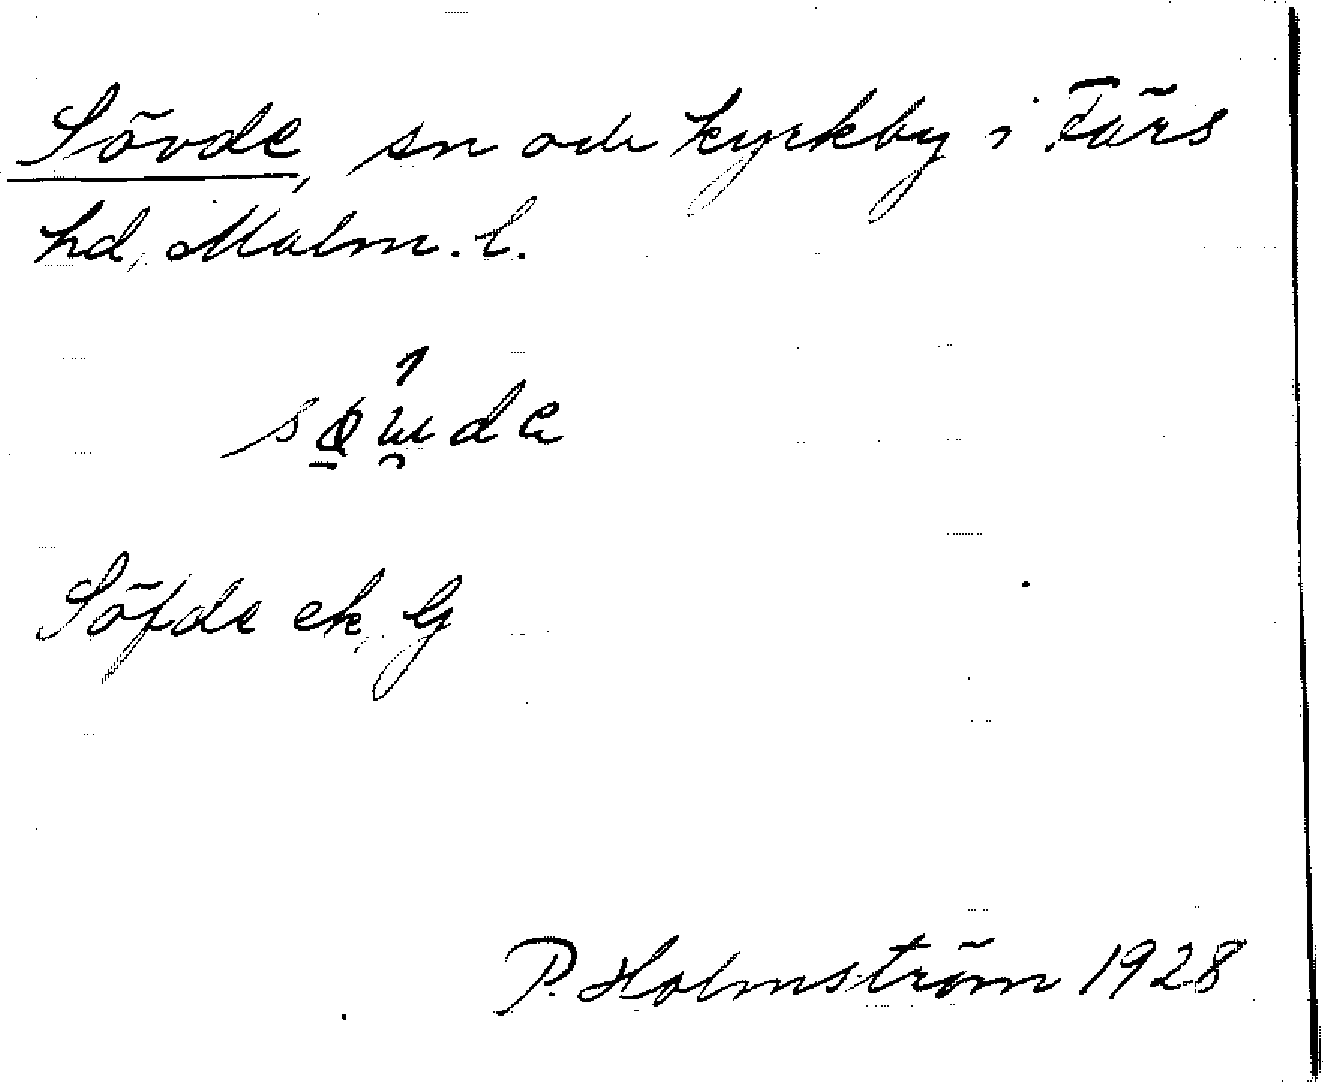 Sövde, sn och kyrkby i Färs
hd, Malm. l.
Söfde ek, G
P. Holmström 1928